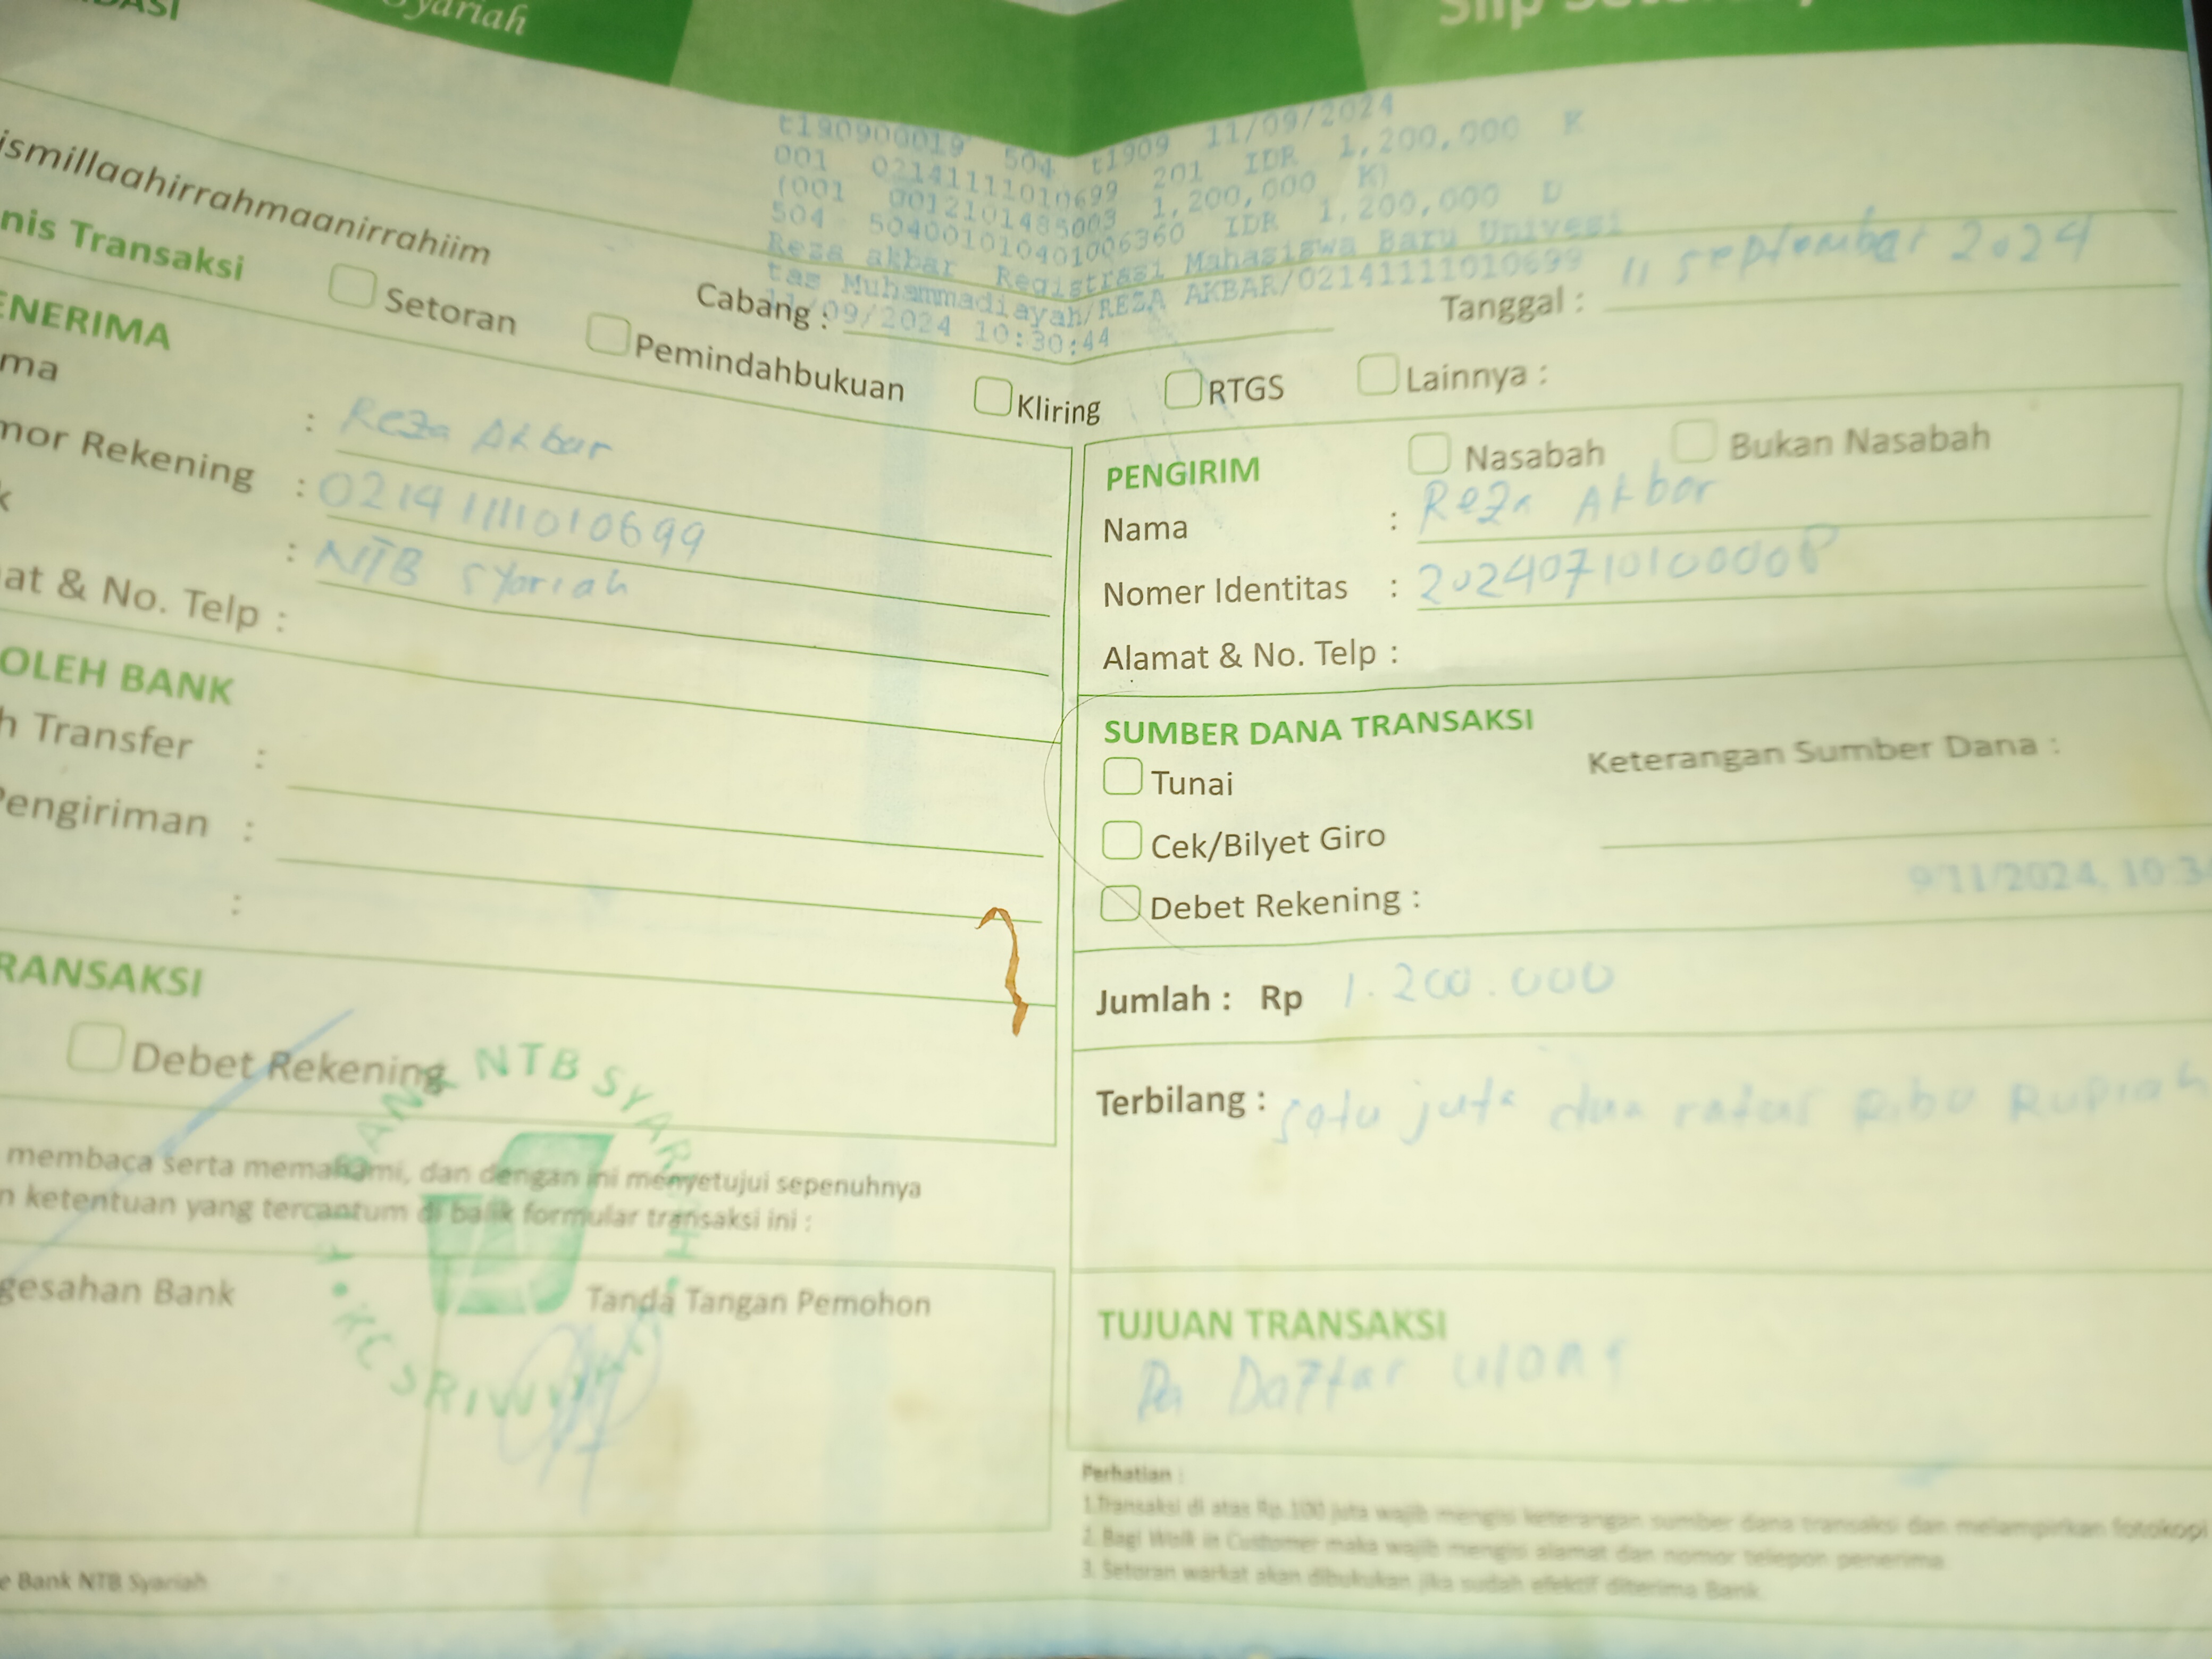 DASI
Syariah
Slip
t190900019 504 t1909 11/09/2024
001 02141111010699 201 IDR 1,200,000 K
(001 0012101485003 1,200,000 K)
504 504001010401006360 IDR 1,200,000 D
Reza akbar Registrasi Mahasiswa Baru Univesi
tas Muhammadiayah/REZA AKBAR/02141111010699
11/09/2024 10:30:44
ismillaahirrahmaanirrahiim
Cabang :
Tanggal : 11 september 2024
nis Transaksi
Setoran
Pemindahbukuan
Kliring
RTGS
Lainnya :
ENERIMA
ma : Reza Akbar
mor Rekening : 02141111010699
k : NTB Syariah
at & No. Telp :
PENGIRIM
Nasabah
Bukan Nasabah
Nama : Reza Akbar
Nomer Identitas :
Alamat & No. Telp :
OLEH BANK
h Transfer :
Pengiriman :
:
SUMBER DANA TRANSAKSI
Keterangan Sumber Dana :
Tunai
Cek/Bilyet Giro
Debet Rekening :
9/11/2024, 10:3
RANSAKSI
Debet Rekening
Jumlah : Rp 1.200.000
Terbilang : satu juta dua ratus Ribu Rupiah
membaca serta memahami, dan dengan ini menyetujui sepenuhnya
n ketentuan yang tercantum di balik formular transaksi ini :
gesahan Bank
Tanda Tangan Pemohon
BANK NTB SYARIAH
KC SRIWIJAYA
TUJUAN TRANSAKSI
Daftar ulang
Perhatian :
1.Transaksi di atas Rp.100 juta wajib mengisi keterangan sumber dana transaksi dan melampirkan fotokopi
2. Bagi Walk in Customer maka wajib mengisi alamat dan nomor telepon penerima
3. Setoran warkat akan dibukukan jika sudah efektif diterima Bank.
e Bank NTB Syariah